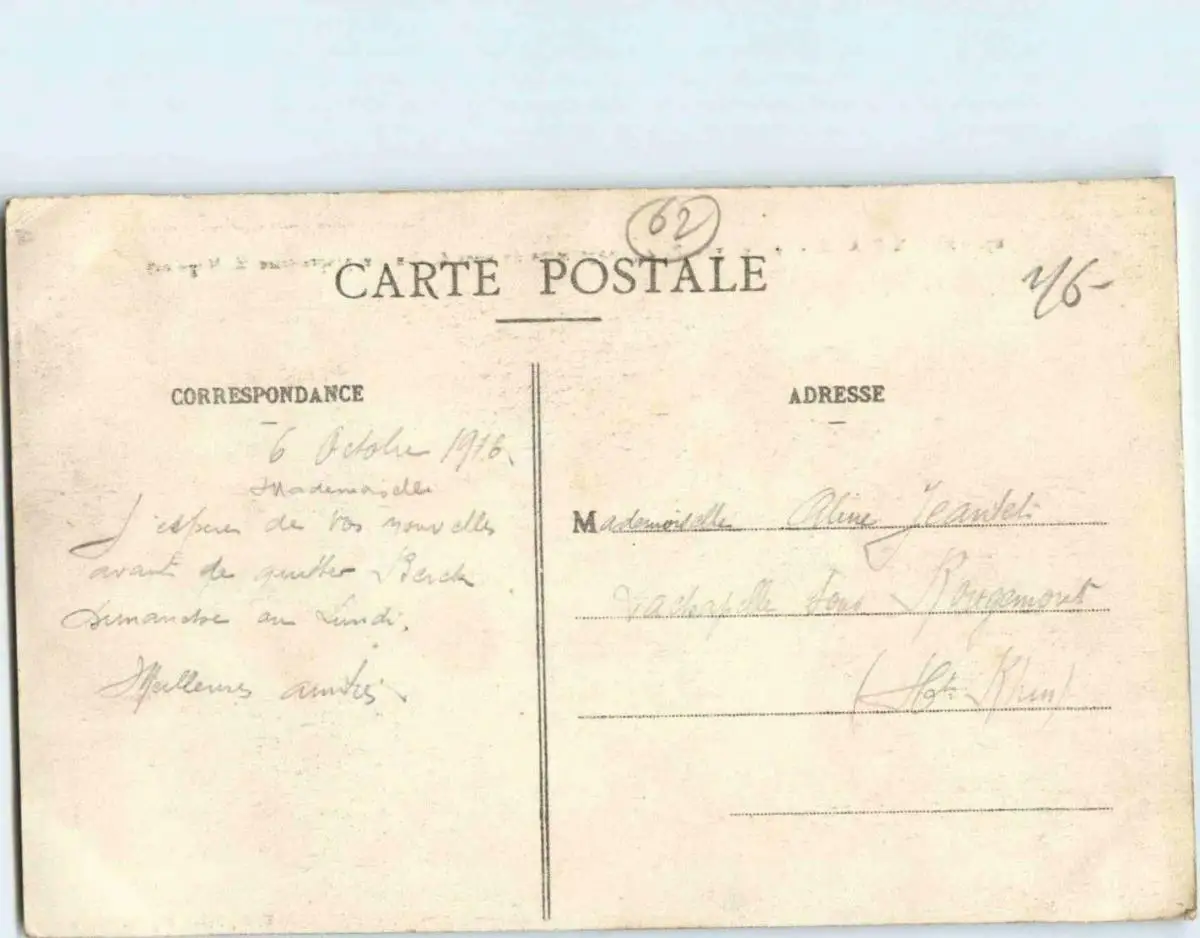 62
CARTE POSTALE
46-
CORRESPONDANCE
6 Octobre 1916.
Mademoiselle
J'espère de vos nouvelles
avant de quitter Berck
Dimanche ou Lundi.
Meilleures amitiés
ADRESSE
Mademoiselle Aline Jeantet
Lachapelle sous Rougemont
(Hte Rhin)